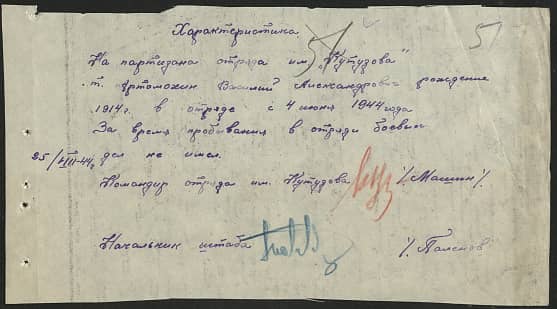 5
Характеристика.
На партизана отряда им. „Кутузова"
т. Артомохин Василий Александрович рождение
1914г. в отряде с 4 июня 1944 года
За время пробывания в отряди боевых
25/VIII-44г. дел не имел.
Командир отряда им. Кутузова /. Машин /.
Начальник штаба /.